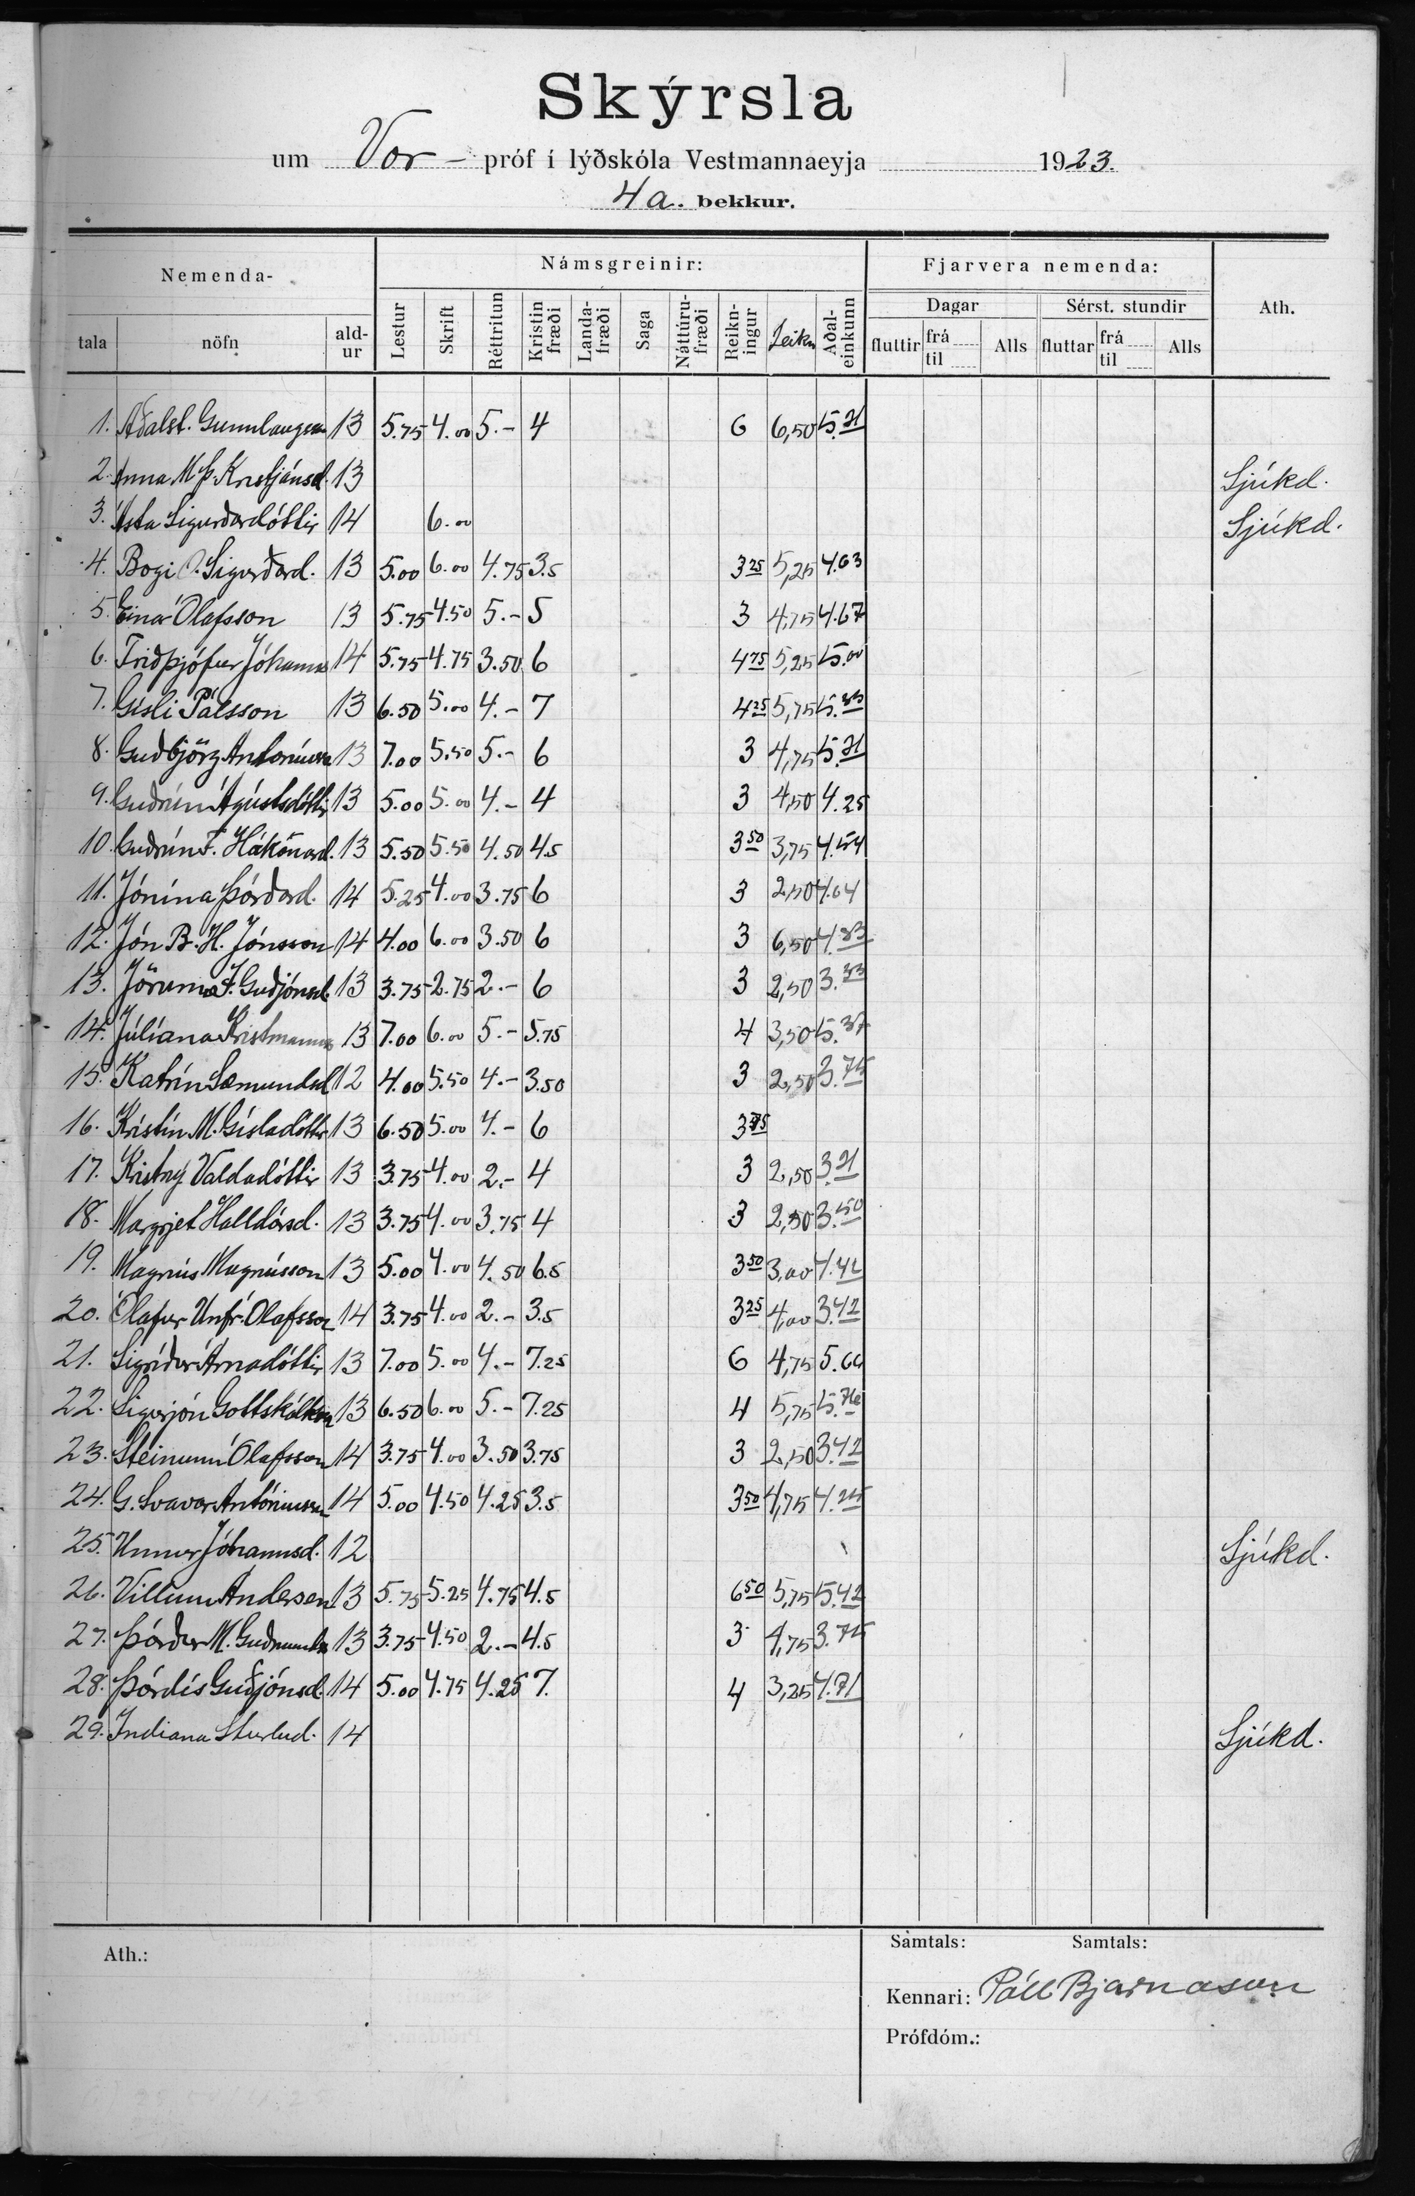 Skýrsla
um Vor- próf í lýðskóla Vestmannaeyja 1923.
4a. bekkur.
Nemenda- Námsgreinir: Fjarvera nemenda: Ath.
Dagar Sérst. stundir
tala nöfn ald-ur Lestur Skrift Réttritun Kristin fræði Landa-fræði Saga Náttúru-fræði Reikn-ingur Leikn Aðal-einkunn fluttir frá til Alls fluttar frá til Alls
1. Aðalst. Gunnlaugss 13 5.75 4.00 5.- 4 6 6,50 5.21
2. Anna M Þ. Kristjánsd. 13 Sjúkd.
3. Ásta Sigurðardóttir 14 6.00 Sjúkd.
4. Bogi Ó. Sigurðard. 13 5.00 6.00 4.75 3.5 3 25 5,25 4.63
5. Einar Ólafsson 13 5.75 4.50 5.- 5 3 4,75 4.67
6. Friðþjófur Jóhanns 14 5.75 4.75 3.50 6 4 75 5,25 5.00
7. Gísli Pálsson 13 6.50 5.00 4.- 7 4 25 5,75 5.33
8. Guðbjörg Antoníusd 13 7.00 5.50 5.- 6 3 4,75 5.21
9. Guðrún Ágústsdóttir 13 5.00 5.00 4.- 4 3 4,50 4.25
10. Guðrún F. Hákonard. 13 5.50 5.50 4.50 4.5 3 50 3,75 4.54
11. Jónína Þórðard. 14 5.25 4.00 3.75 6 3 2,50 4.04
12. Jón B. H. Jónsson 14 4.00 6.00 3.50 6 3 6,50 4.83
13. Guðjónsd. 13 3.75 2.75 2.- 6 3 2,50 3.33
14. Júlíana Kristmanns 13 7.00 6.00 5.- 5.75 4 3,50 5.37
15. Katrín Sæmundsd 12 4.00 5.50 4.- 3.50 3 2,50 3.75
16. Kristín M. Gísladóttir 13 6.50 5.00 4.- 6 3 75
17. Kristný Valdadóttir 13 3.75 4.00 2.- 4 3 2,50 3.21
18. Margrjet Halldórsd. 13 3.75 4.00 3.75 4 3 2,50 3.50
19. Magnús Magnússon 13 5.00 4.00 4.50 6.5 3 50 3,00 4.42
20. Ólafur Unfr. Ólafsson 14 3.75 4.00 2.- 3.5 3 25 4,00 3.42
21. Sigríður Árnadóttir 13 7.00 5.00 4.- 7.25 6 4,75 5.66
22. Sigurjón Gottskálksson 13 6.50 6.00 5.- 7.25 4 5,75 5.76
23. Steinunn Ólafsson 14 3.75 4.00 3.50 3.75 3 2,50 3.42
24. G. Svavar Antóníusson 14 5.00 4.50 4.25 3.5 3 50 4,75 4.25
25. Unnur Jóhannsd. 12 Sjúkd.
26. Villum Andersen 13 5.75 5.25 4.75 4.5 6 50 5,75 5.42
27. Þórður M. Guðmunds 13 3.75 4.50 2.- 4.5 3 4,75 3.75
28. Þórdís Guðjónsd. 14 5.00 4.75 4.25 7. 4 3,25 4.71
29. Indiana Sturlud. 14 Sjúkd.
Ath.: Samtals: Samtals:
Kennari: Páll Bjarnason
Prófdóm.: